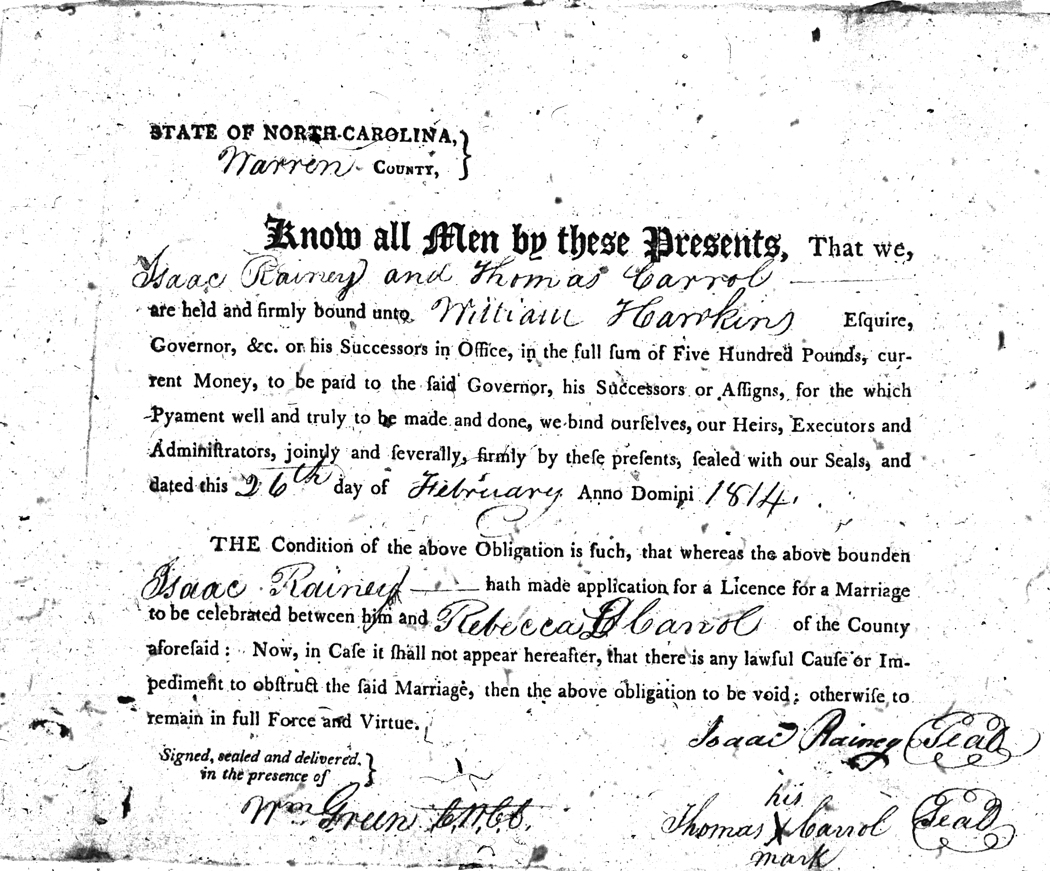 STATE OF NORTH-CAROLINA, }
Warren COUNTY,
Know all Men by these Presents, That we,
Isaac Rainey and Thomas Carrol
are held and firmly bound unto William Hawkins Eſquire,
Governor, &c. or his Succeſſors in Office, in the full ſum of Five Hundred Pounds, cur-
rent Money, to be paid to the ſaid Governor, his Succeſſors or Aſſigns, for the which
Pyament well and truly to be made and done, we bind ourſelves, our Heirs, Executors and
Adminiſtrators, jointly and ſeverally, firmly by theſe preſents, ſealed with our Seals, and
dated this 26th day of February Anno Domini 1814.
THE Condition of the above Obligation is ſuch, that whereas the above bounden
Isaac Rainey hath made application for a Licence for a Marriage
to be celebrated between him and Rebecca Carrol of the County
aforeſaid: Now, in Caſe it ſhall not appear hereafter, that there is any lawful Cauſe or Im-
pediment to obſtruct the ſaid Marriage, then the above obligation to be void: otherwiſe to
remain in full Force and Virtue.
Isaac Rainey Seal
Signed, sealed and delivered, }
in the presence of
Wm Green C.W.C.C.
his
Thomas X Carrol Seal
mark